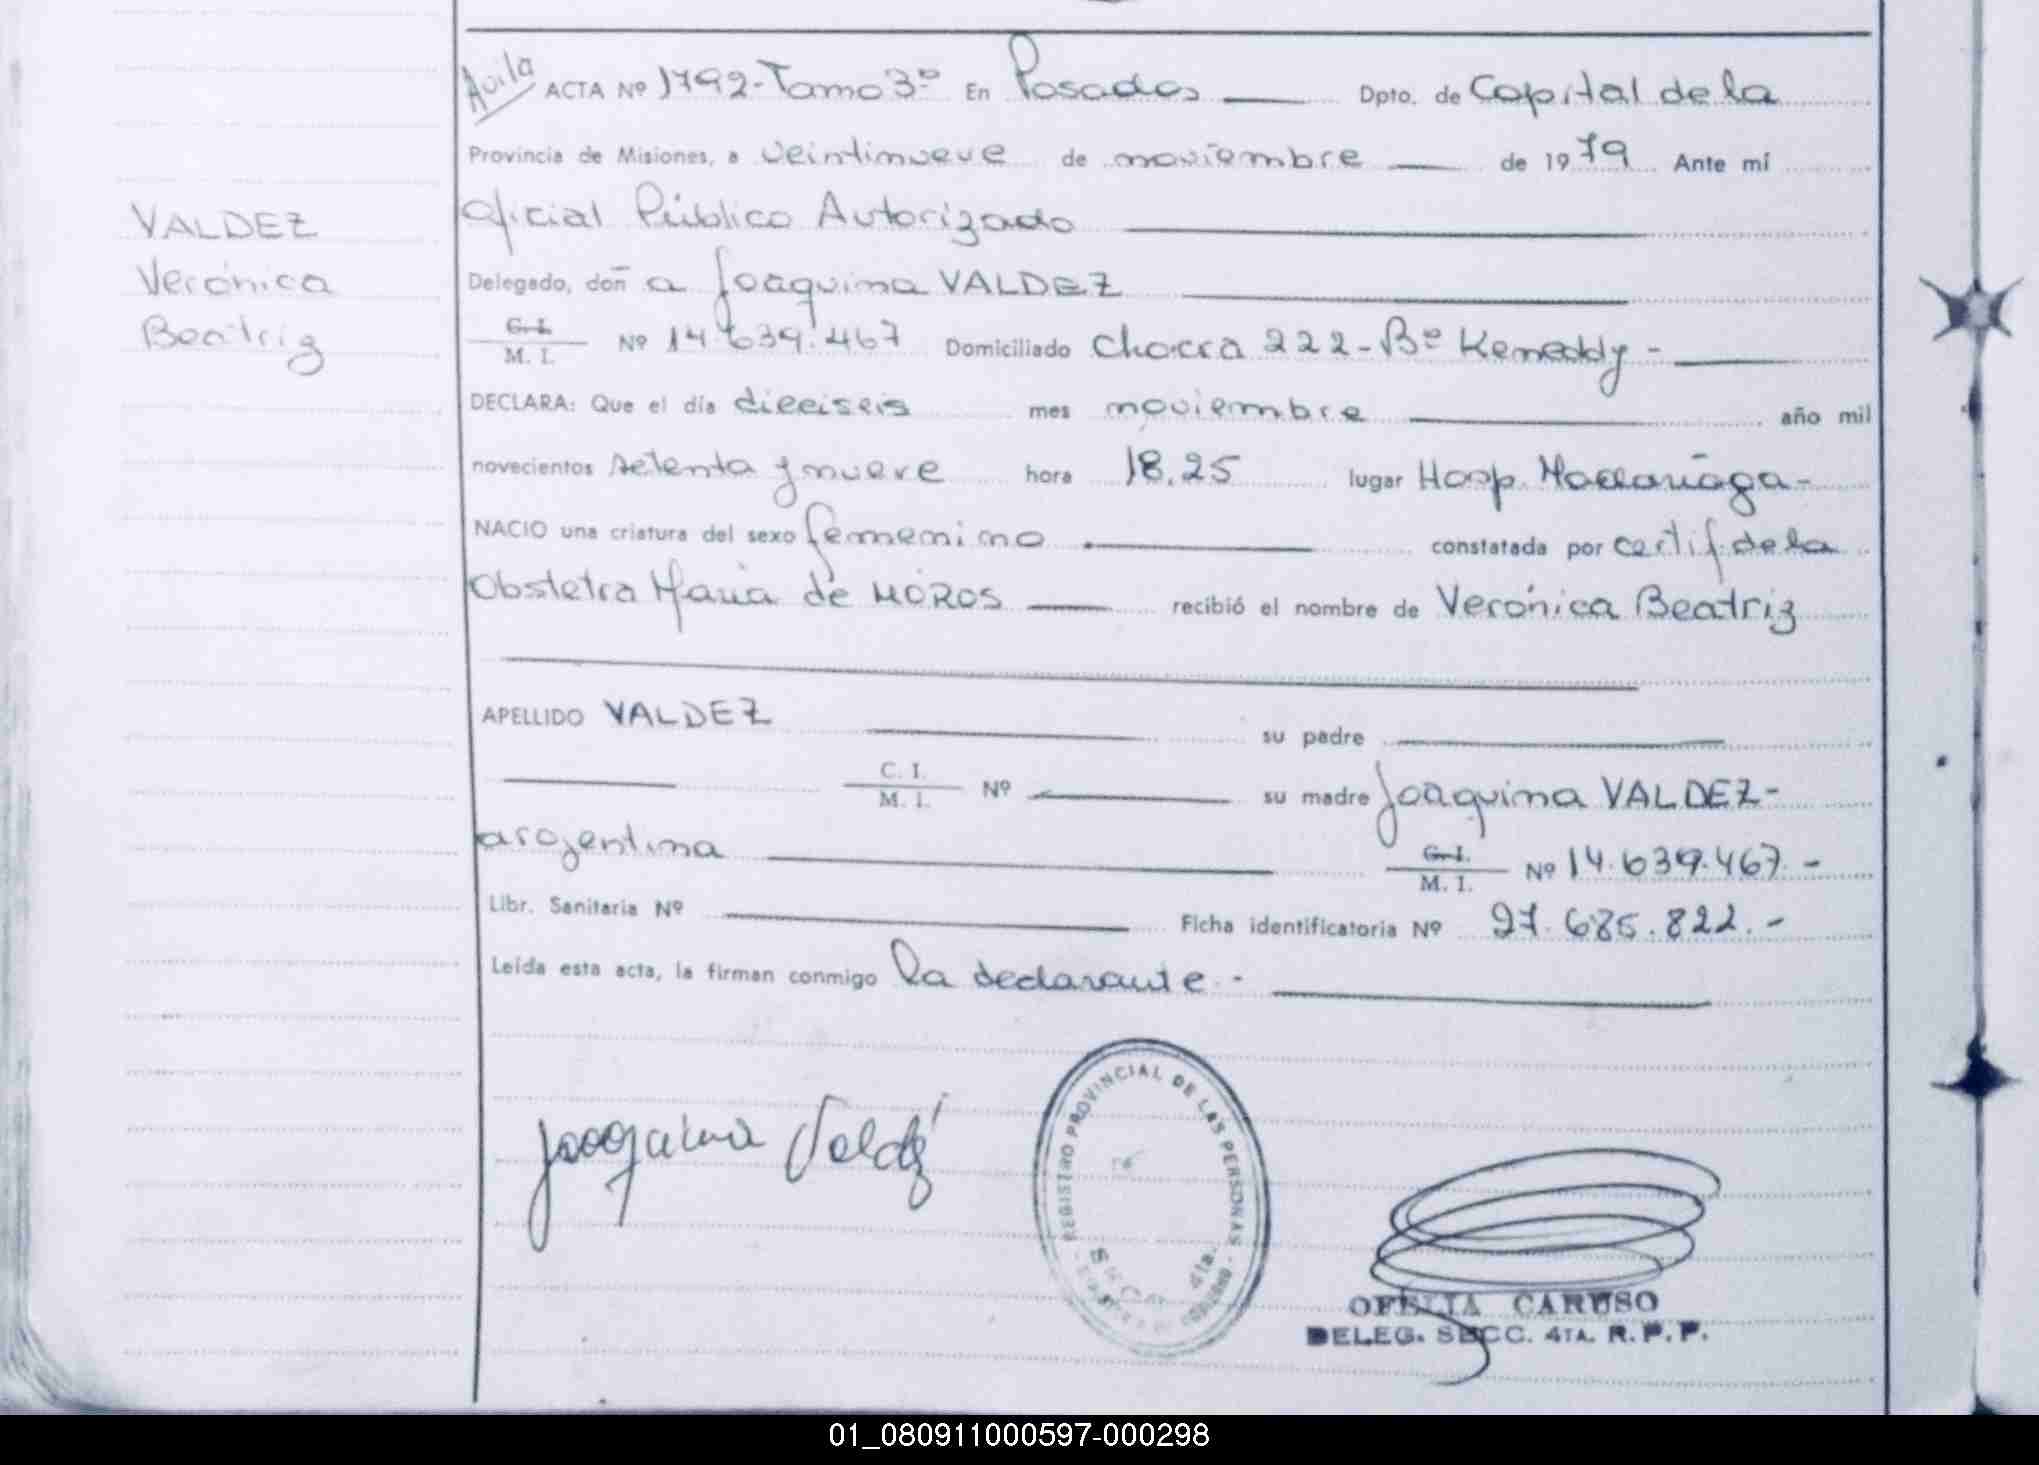 Avila ACTA Nº 1792-Tomo 3º En Posadas Dpto. de Capital de la
Provincia de Misiones, a veintinueve de noviembre de 1979 Ante mí
VALDEZ
Verónica
Beatriz
Oficial Público Autorizado
Delegado, doñ a Joaquina VALDEZ
C. I.
M. I. Nº 14.639.467 Domiciliado Chacra 222-Bº Kenneddy-
DECLARA: Que el día dieciseis mes noviembre año mil
novecientos setenta y nueve hora 18,25 lugar Hosp. Madariaga-
NACIO una criatura del sexo femenino constatada por certif. de la
Obstetra María de MOROS recibió el nombre de Verónica Beatriz
APELLIDO VALDEZ su padre
C. I.
M. I. Nº su madre Joaquina VALDEZ-
argentina C. I.
M. I. Nº 14.639.467.-
Libr. Sanitaria Nº Ficha identificatoria Nº 27.685.822.-
Leída esta acta, la firman conmigo la declarante.-
Joaquina Valdez
REGISTRO PROVINCIAL DE LAS PERSONAS
4ta.
OFELIA CARUSO
DELEG. SECC. 4TA. R. P. P.
01_080911000597-000298